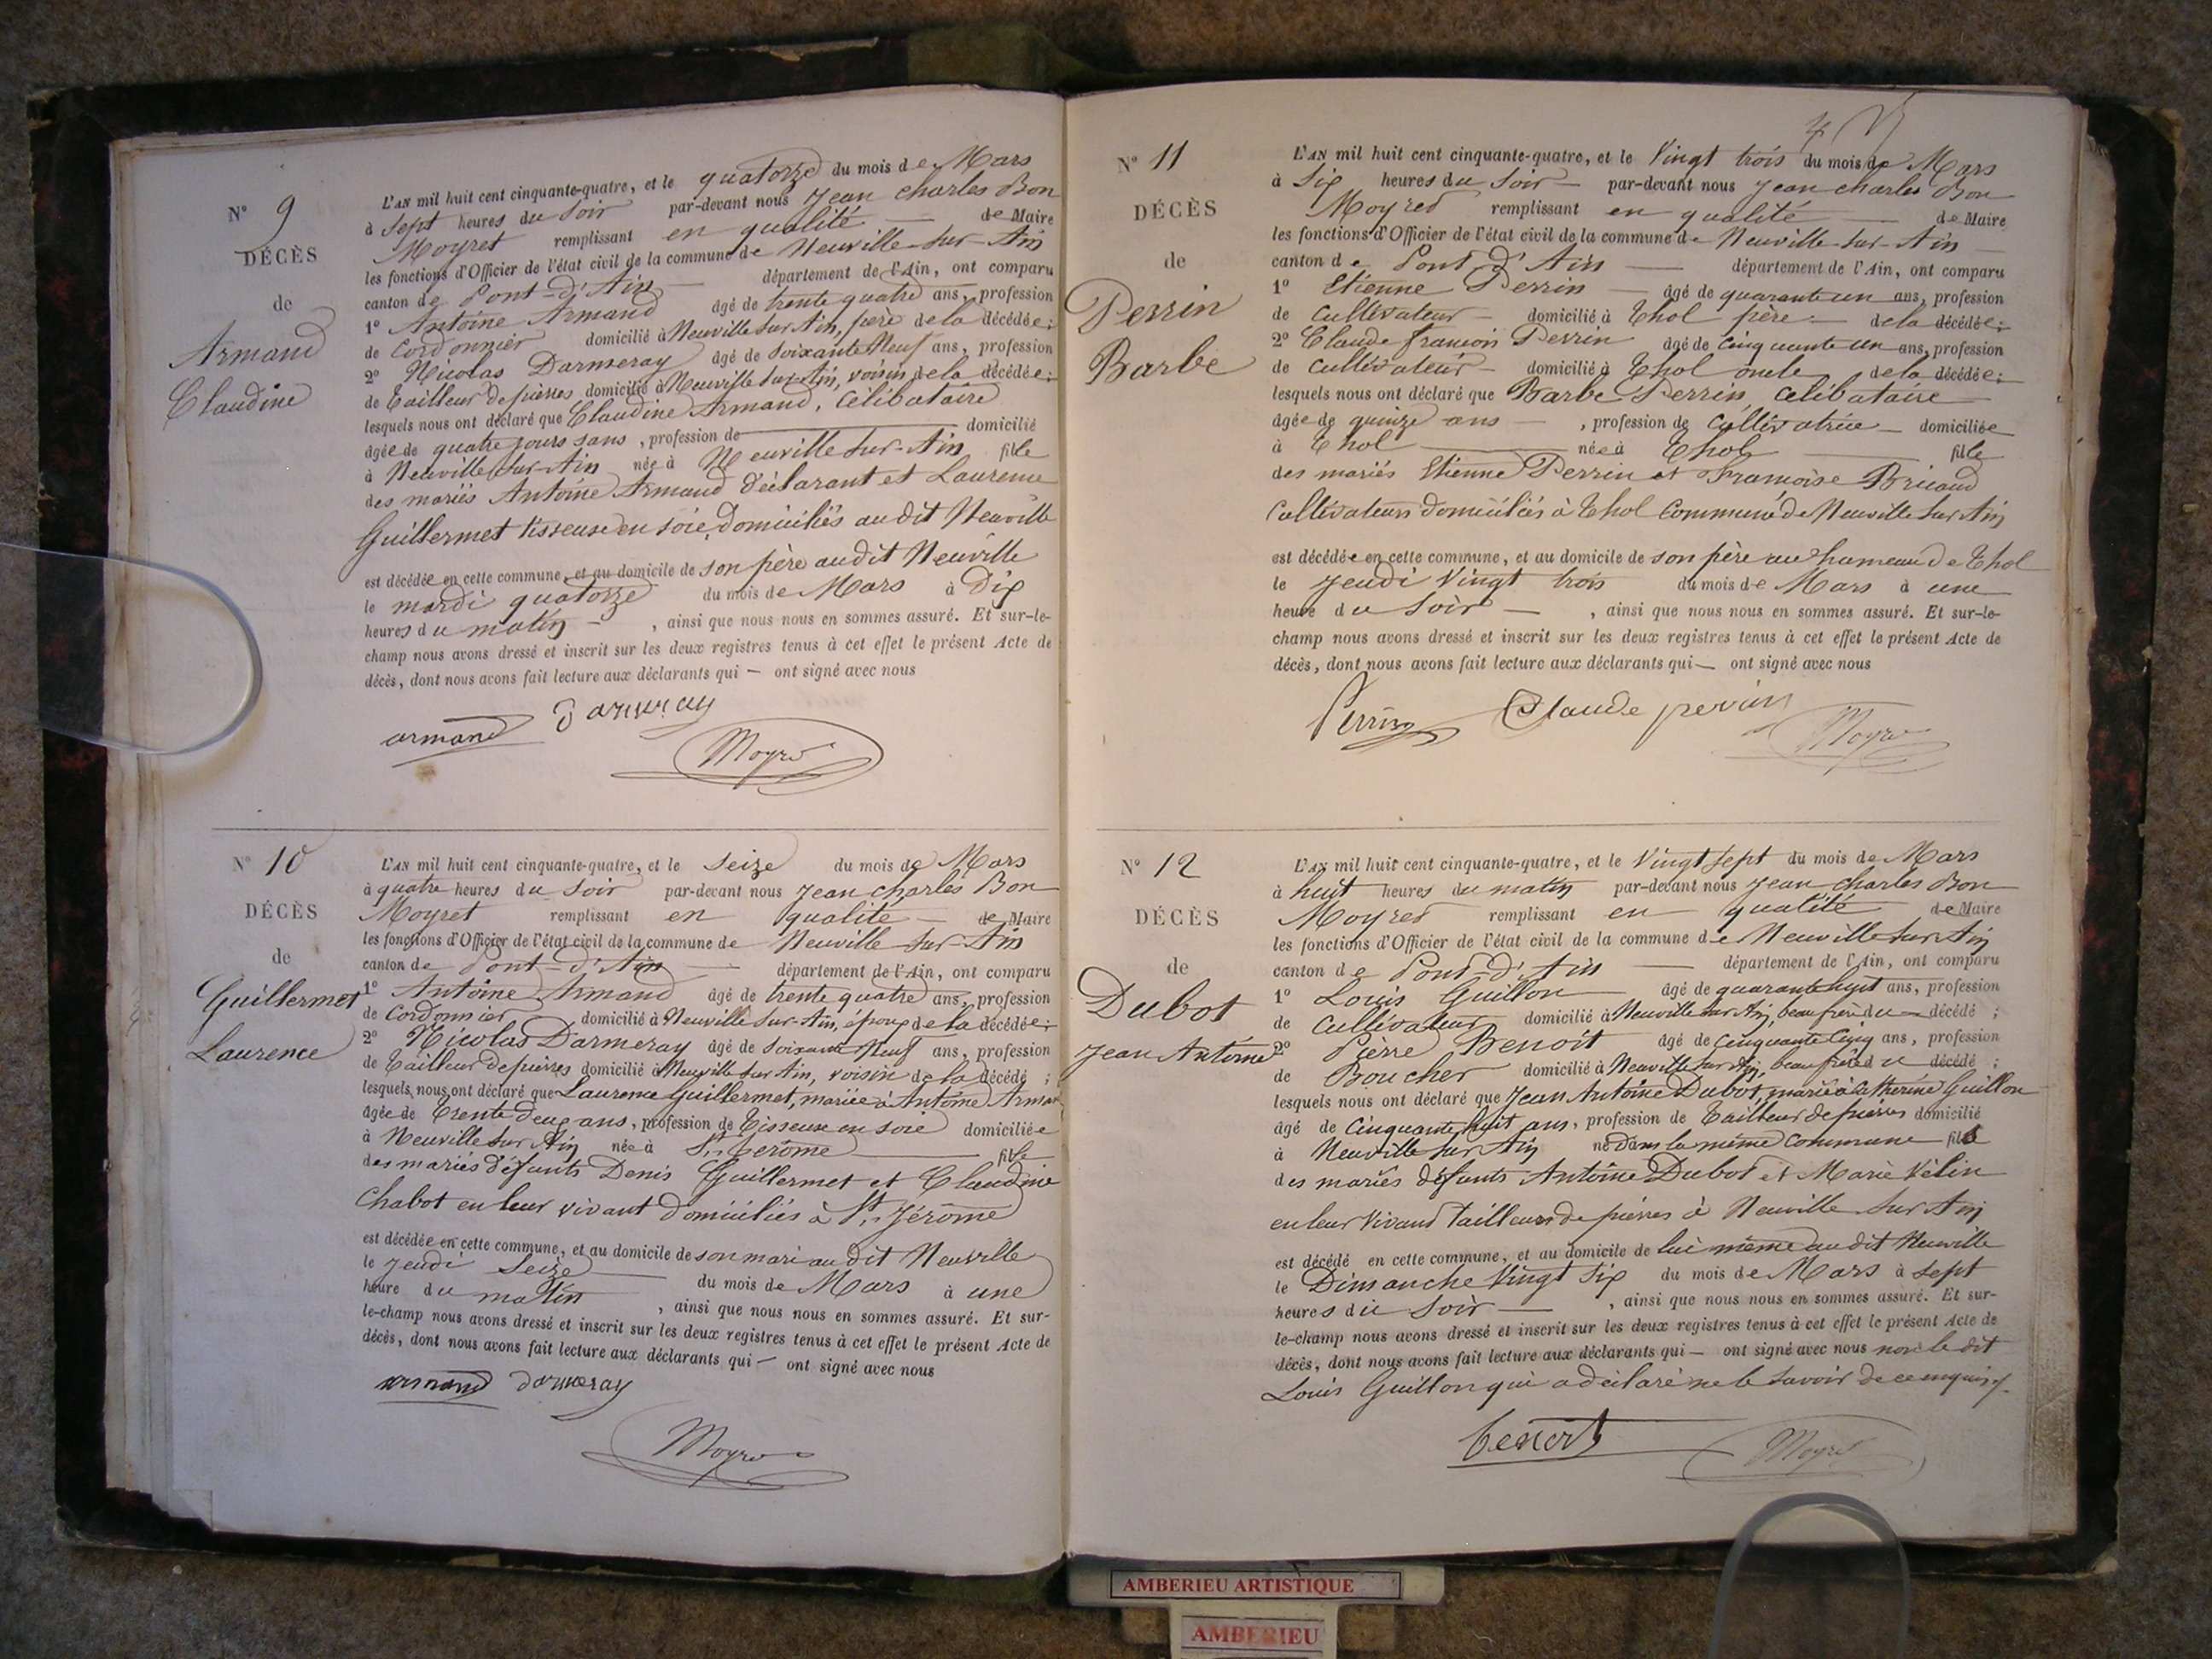 N° 9
DÉCÈS
de
Armand
Claudine
L'AN mil huit cent cinquante-quatre, et le quatorze du mois de Mars
à Sept heures du Soir par-devant nous Jean Charles Bon
Moyret remplissant en qualité de Maire
les fonctions d'Officier de l'état civil de la commune de Neuville-sur-Ain
canton de Pont-d'Ain département de l'Ain, ont comparu
1° Antoine Armand âgé de trente quatre ans, profession
de Cordonnier domicilié à Neuville sur Ain, père de la décédée;
2° Nicolas Darmeray âgé de Soixante Neuf ans, profession
de Tailleur de pierres domicilié à Neuville sur Ain, voisin de la décédée;
lesquels nous ont déclaré que Claudine Armand, Célibataire
âgée de quatre jours sans, profession de domicilié
à Neuville sur-Ain née à Neuville sur-Ain fille
des mariés Antoine Armand Déclarant et Laurence
Guillermet tisseuse en soie, Domiciliés au dit Neuville
est décédée en cette commune, et au domicile de son père au dit Neuville
le mardi quatorze du mois de Mars à Dix
heures du matin, ainsi que nous nous en sommes assuré. Et sur-le-
champ nous avons dressé et inscrit sur les deux registres tenus à cet effet le présent Acte de
décès, dont nous avons fait lecture aux déclarants qui — ont signé avec nous
armand Darmeray
Moyret
N° 10
DÉCÈS
de
Guillermet
Laurence
L'AN mil huit cent cinquante-quatre, et le Seize du mois de Mars
à quatre heures du Soir par-devant nous Jean Charles Bon
Moyret remplissant en qualité de Maire
les fonctions d'Officier de l'état civil de la commune de Neuville sur-Ain
canton de Pont-d'Ain département de l'Ain, ont comparu
1° Antoine Armand âgé de trente quatre ans, profession
de Cordonnier domicilié à Neuville sur-Ain, époux de la décédée;
2° Nicolas Darmeray âgé de Soixante Neuf ans, profession
de Tailleur de pierres domicilié à Neuville sur Ain, voisin de la décédé;
lesquels nous ont déclaré que Laurence Guillermet, mariée à Antoine Armand
âgée de Trente deux ans, profession de Tisseuse en soie domiciliée
à Neuville sur Ain née à St. Jérôme fille
des mariés défunts Denis Guillermet et Claudine
Chabot en leur vivant Domiciliés à St. Jérôme
est décédée en cette commune, et au domicile de son mari au dit Neuville
le Jeudi Seize du mois de Mars à une
heure du matin, ainsi que nous nous en sommes assuré. Et sur-
le-champ nous avons dressé et inscrit sur les deux registres tenus à cet effet le présent Acte de
décès, dont nous avons fait lecture aux déclarants qui — ont signé avec nous
armand Darmeray
Moyret
N° 11
DÉCÈS
de
Perrin
Barbe
L'AN mil huit cent cinquante-quatre, et le Vingt trois du mois de Mars
à Six heures du Soir par-devant nous Jean Charles Bon
Moyret remplissant en qualité de Maire
les fonctions d'Officier de l'état civil de la commune de Neuville-sur-Ain
canton de Pont-d'Ain département de l'Ain, ont comparu
1° Etienne Perrin âgé de quarante un ans, profession
de Cultivateur domicilié à Thol père de la décédée;
2° Claude françois Perrin âgé de Cinquante un ans, profession
de Cultivateur domicilié à Thol oncle de la décédée;
lesquels nous ont déclaré que Barbe Perrin, Célibataire
âgée de quinze ans, profession de Cultivatrice domiciliée
à Thol née à Thol fille
des mariés Etienne Perrin et Françoise Bricaud
Cultivateurs Domiciliés à Thol Commune de Neuville sur Ain
est décédée en cette commune, et au domicile de son père au hameau de Thol
le Jeudi Vingt trois du mois de Mars à une
heure du Soir, ainsi que nous nous en sommes assuré. Et sur-le-
champ nous avons dressé et inscrit sur les deux registres tenus à cet effet le présent Acte de
décès, dont nous avons fait lecture aux déclarants qui — ont signé avec nous
Perrin Claude perrin
Moyret
N° 12
DÉCÈS
de
Dubot
Jean Antoine
L'AN mil huit cent cinquante-quatre, et le Vingt Sept du mois de Mars
à huit heures du matin par-devant nous Jean Charles Bon
Moyret remplissant en qualité de Maire
les fonctions d'Officier de l'état civil de la commune de Neuville sur Ain
canton de Pont-d'Ain département de l'Ain, ont comparu
1° Louis Guillon âgé de quarante huit ans, profession
de Cultivateur domicilié à Neuville sur Ain, beau frère du décédé;
2° Pierre Benoit âgé de Cinquante Cinq ans, profession
de Boucher domicilié à Neuville sur Ain, beau frère du décédé;
lesquels nous ont déclaré que Jean Antoine Dubot, marié à Catherine Guillon
âgé de Cinquante huit ans, profession de Tailleur de pierres domicilié
à Neuville sur Ain né Dans la même Commune fils
des mariés défunts Antoine Dubot et Marie Vélin
en leur Vivant Tailleurs de pierres à Neuville sur Ain
est décédé en cette commune, et au domicile de lui même au dit Neuville
le Dimanche Vingt Six du mois de Mars à Sept
heures du Soir, ainsi que nous nous en sommes assuré. Et sur-
le-champ nous avons dressé et inscrit sur les deux registres tenus à cet effet le présent Acte de
décès, dont nous avons fait lecture aux déclarants qui — ont signé avec nous non le dit
Louis Guillon qui a déclaré ne le Savoir de ce enquis
benoit Moyret
AMBERIEU ARTISTIQUE
AMBERIEU